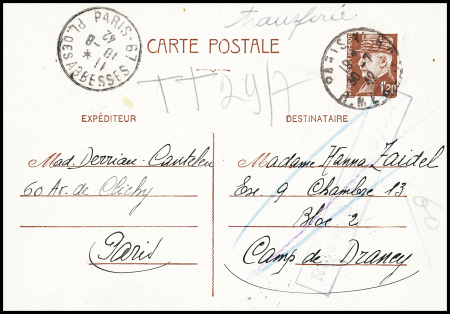 transferie
PARIS-67
PL. DES ABBESSES
11 * 18-8 42
CARTE POSTALE
TT 29/7
1,20
EXPÉDITEUR
DESTINATAIRE
Mad. Derrian-Canteleu
60 Av. de Clichy
Paris
Madame Hanna Zaidel
Esc. 9 Chambre 13
Bloc 2
Camp de Drancy
60